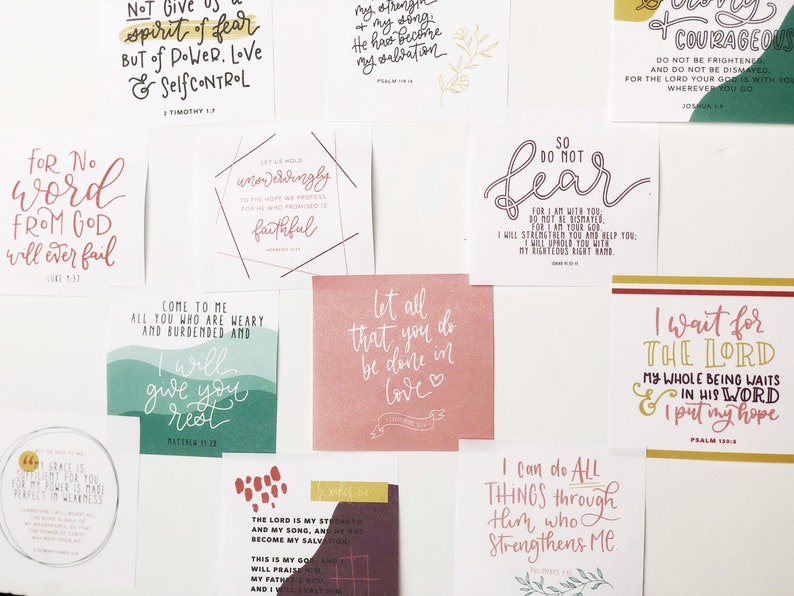 NOT GIVE US A
spirit of fear
BUT OF POWER, LOVE
& SELFCONTROL
2 TIMOTHY 1:7
my strength
& my song;
He has become
my salvation
PSALM 119:14
strong
+ COURAGEOUS
DO NOT BE FRIGHTENED,
AND DO NOT BE DISMAYED,
FOR THE LORD YOUR GOD IS WITH YOU
WHEREVER YOU GO
JOSHUA 1:9
FOR NO
word
FROM GOD
will ever fail
LUKE 1:37
LET US HOLD
unswervingly
TO THE HOPE WE PROFESS,
FOR HE WHO PROMISED IS
faithful
HEBREWS 10:23
SO
DO NOT
fear
FOR I AM WITH YOU;
DO NOT BE DISMAYED,
FOR I AM YOUR GOD.
I WILL STRENGTHEN YOU AND HELP YOU;
I WILL UPHOLD YOU WITH
MY RIGHTEOUS RIGHT HAND.
ISAIAH 41:10-11
COME TO ME
ALL YOU WHO ARE WEARY
AND BURDENDED AND
I will
give you
rest
MATTHEW 11:28
Let all
that you do
be done in
love
1 CORINTHIANS 16:14
I wait for
THE LORD
MY WHOLE BEING WAITS
& IN HIS WORD
I put my hope
PSALM 130:5
BUT HE SAID TO ME,
"MY GRACE IS
SUFFICIENT FOR YOU
FOR MY POWER IS MADE
PERFECT IN WEAKNESS
THEREFORE I WILL BOAST ALL
THE MORE GLADLY OF
MY WEAKNESSES, SO THAT
THE POWER OF CHRIST
MAY REST UPON ME.
2 CORINTHIANS 12:9
THE LORD IS MY STRENGTH
AND MY SONG, AND HE HAS
BECOME MY SALVATION.
THIS IS MY GOD, AND I
WILL PRAISE HIM,
MY FATHER'S GOD,
AND I WILL EXALT HIM.
I can do ALL
THINGS through
Him who
Strengthens ME.
PHILIPPIANS 4:13